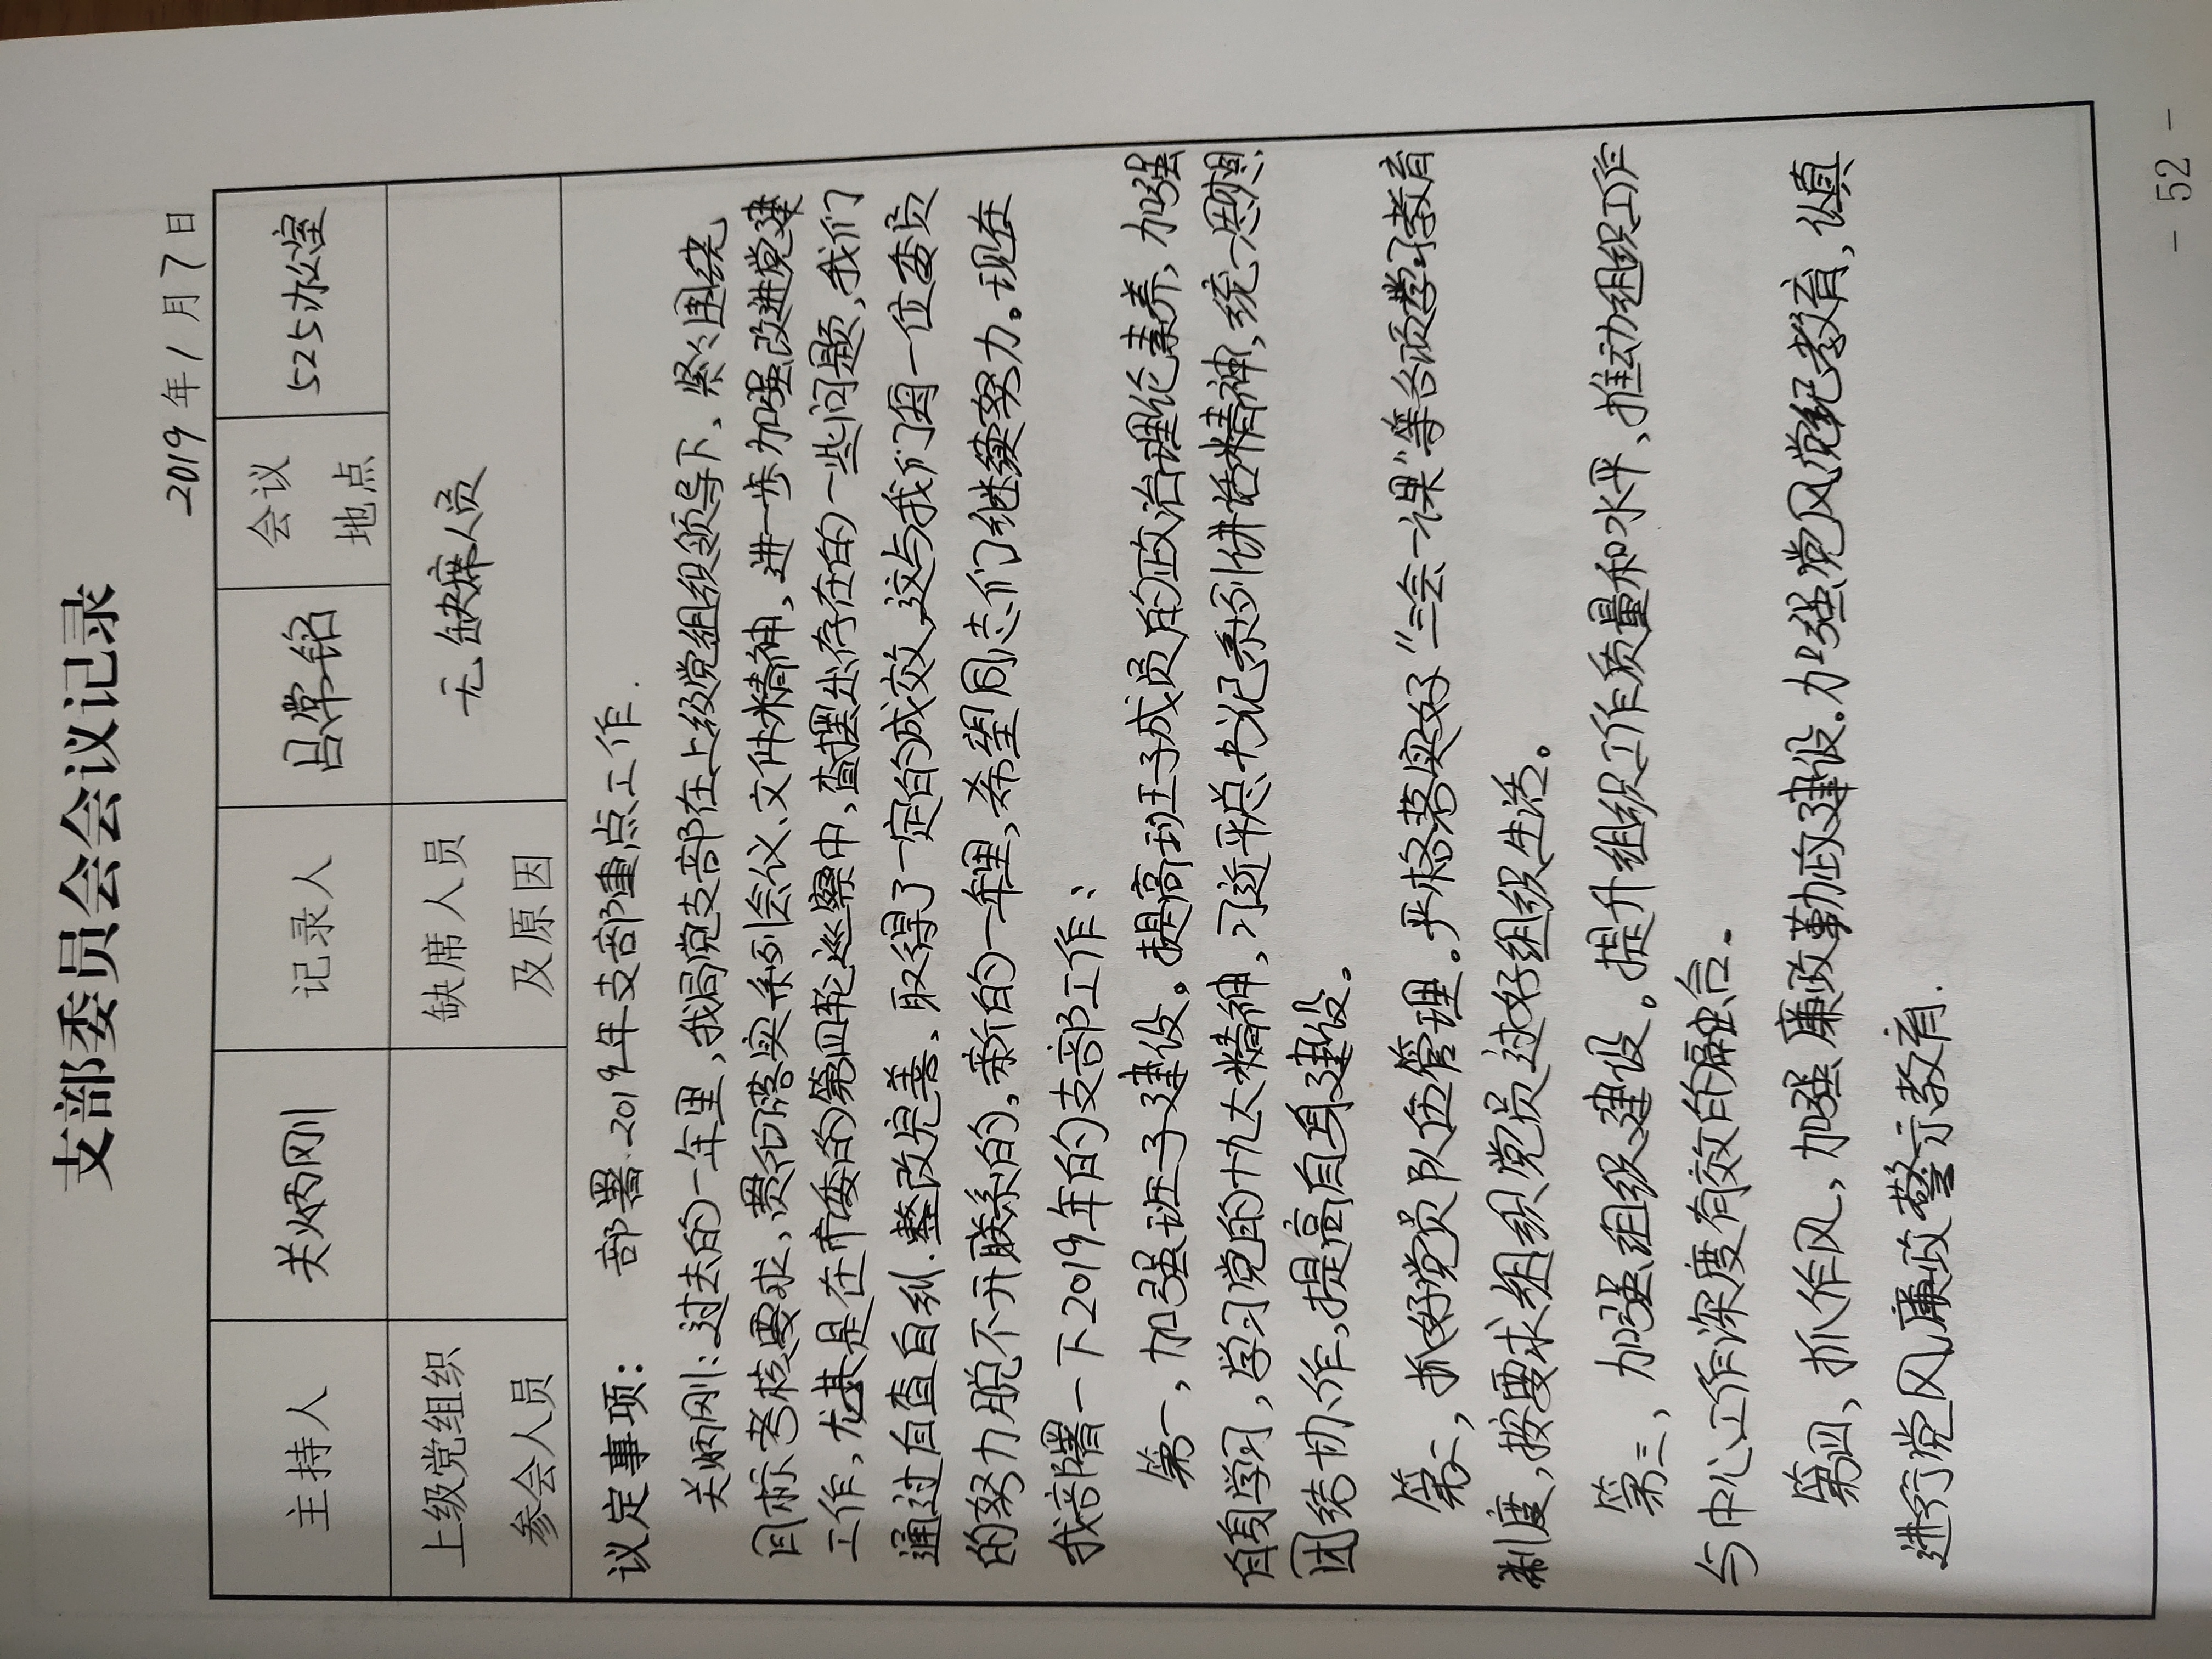 支部委员会会议记录
2019年1月7日
主持人 关炳刚 记录人 吕常铭 会议地点 525办公室
上级党组织参会人员 缺席人员及原因 无缺席人员
议定事项： 部署2019年支部重点工作.
关炳刚：过去的一年里，我局党支部在上级党组织领导下、紧紧围绕
目标考核要求，贯彻落实系列会议、文件精神，进一步加强改进党建
工作，尤其是在市委的第四轮巡察中，查摆出存在的一些问题，我们
通过自查自纠.整改完善、取得了一定的成效，这与我们每一位委员
的努力脱不开联系的，新的一年里，希望同志们继续努力。现在
我部署一下2019年的支部工作：
第一，加强班子建设。提高班子成员的政治理论素养，加强
自身学习，学习党的十九大精神，习近平总书记系列讲话精神，统一思想，
团结协作，提高自身建设。
第二，抓好党员队伍管理。严格落实好“三会一课”等各项学习教育
制度，按要求组织党员过好组织生活。
第三，加强组织建设。提升组织工作质量和水平，推动组织工作
与中心工作深度有效的融合。
第四，抓作风，加强廉政勤政建设.加强党风党纪教育，认真
进行党风廉政警示教育.
- 52 -